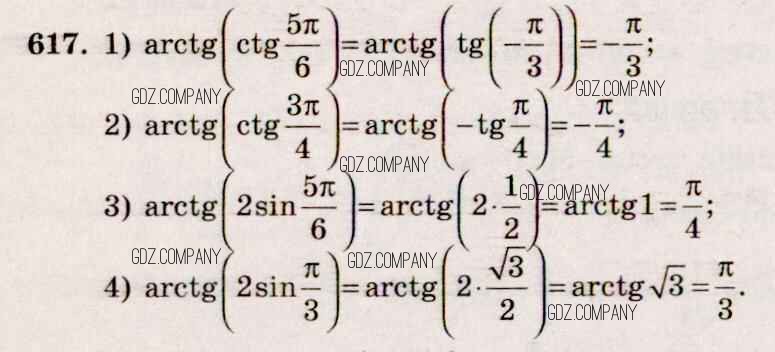 617. 1) arctg(ctg 5π/6) = arctg(tg(−π/3)) = −π/3;
GDZ.COMPANY
GDZ.COMPANY GDZ.COMPANY
2) arctg(ctg 3π/4) = arctg(−tg π/4) = −π/4;
GDZ.COMPANY
GDZ.COMPANY
3) arctg(2sin 5π/6) = arctg(2·1/2) = arctg1 = π/4;
GDZ.COMPANY GDZ.COMPANY
4) arctg(2sin π/3) = arctg(2·√3/2) = arctg√3 = π/3.
GDZ.COMPANY